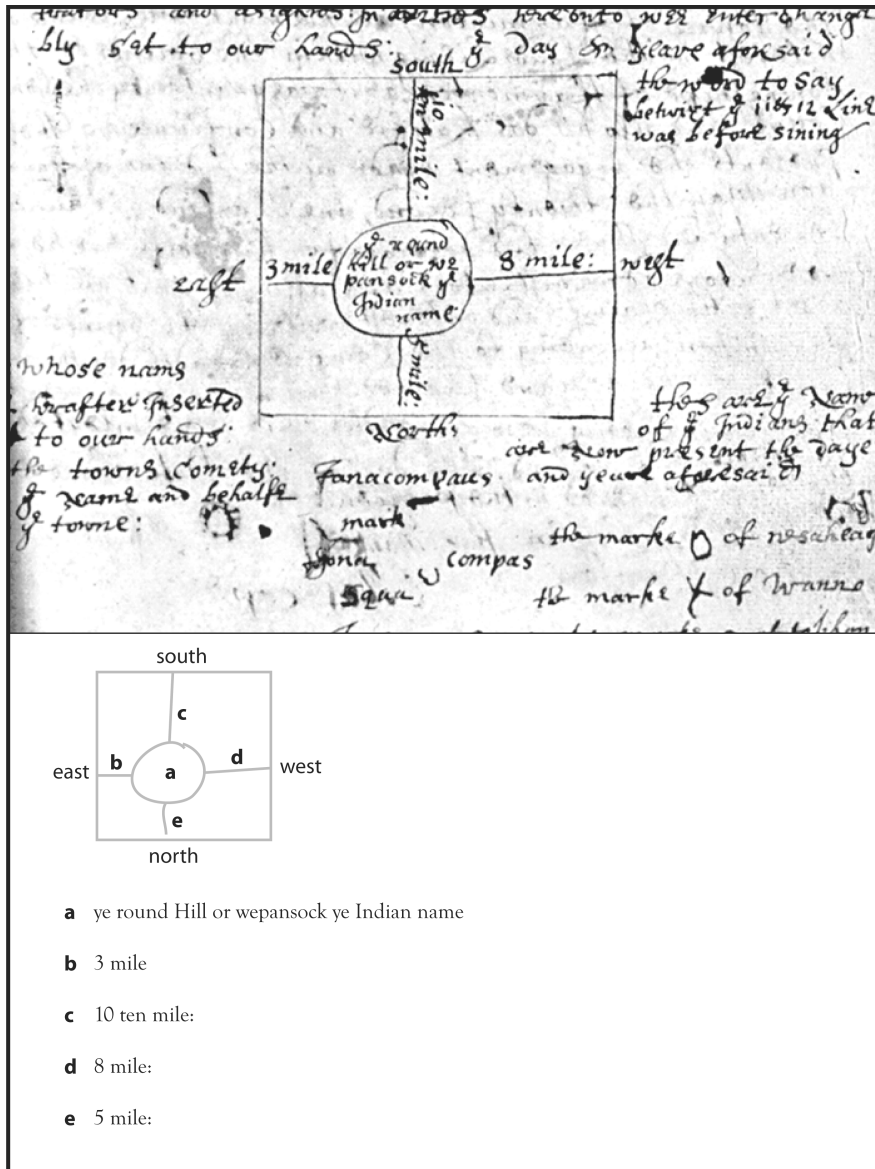 and assigns: In wittnes hereunto wee enterchangea
bly set to our hands: ye day & yeare aforesaid
south
the word to say
betwixt ye 11 & 12 Line
was before sining
10
ten mile:
ye round
Hill or we
pansock ye
Indian
name
east 3 mile 8 mile: west
5 mile:
North
whose name
hereafter Inserted
to our hands:
the towns Comety:
ye name and behalfe
ye towne:
thes are ye Name
of ye Indians that
are now present the daye
and yeare aforesaid
Tanacompaus
mark
compas
Squa
the marke of nesaheag
the marke of Wanno
south
c
east b a d west
e
north
a ye round Hill or wepansock ye Indian name
b 3 mile
c 10 ten mile:
d 8 mile:
e 5 mile: